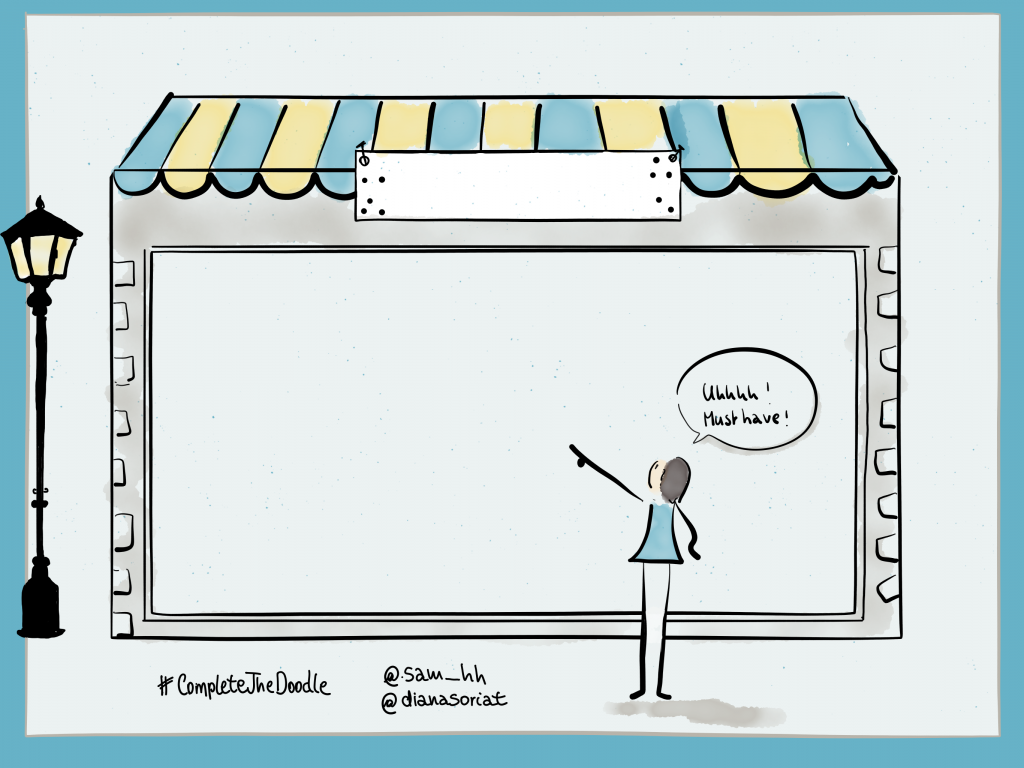 Uhhhh !
Must have !
#CompleteTheDoodle
@.sam_hh
@dianasoriat